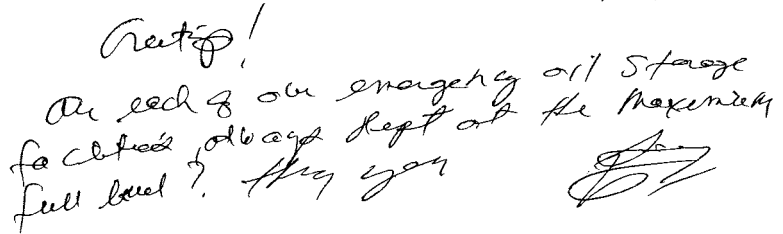 Greetings!
Are each of our emergency oil storage
facilities always kept at the maximum
full level? Thank you